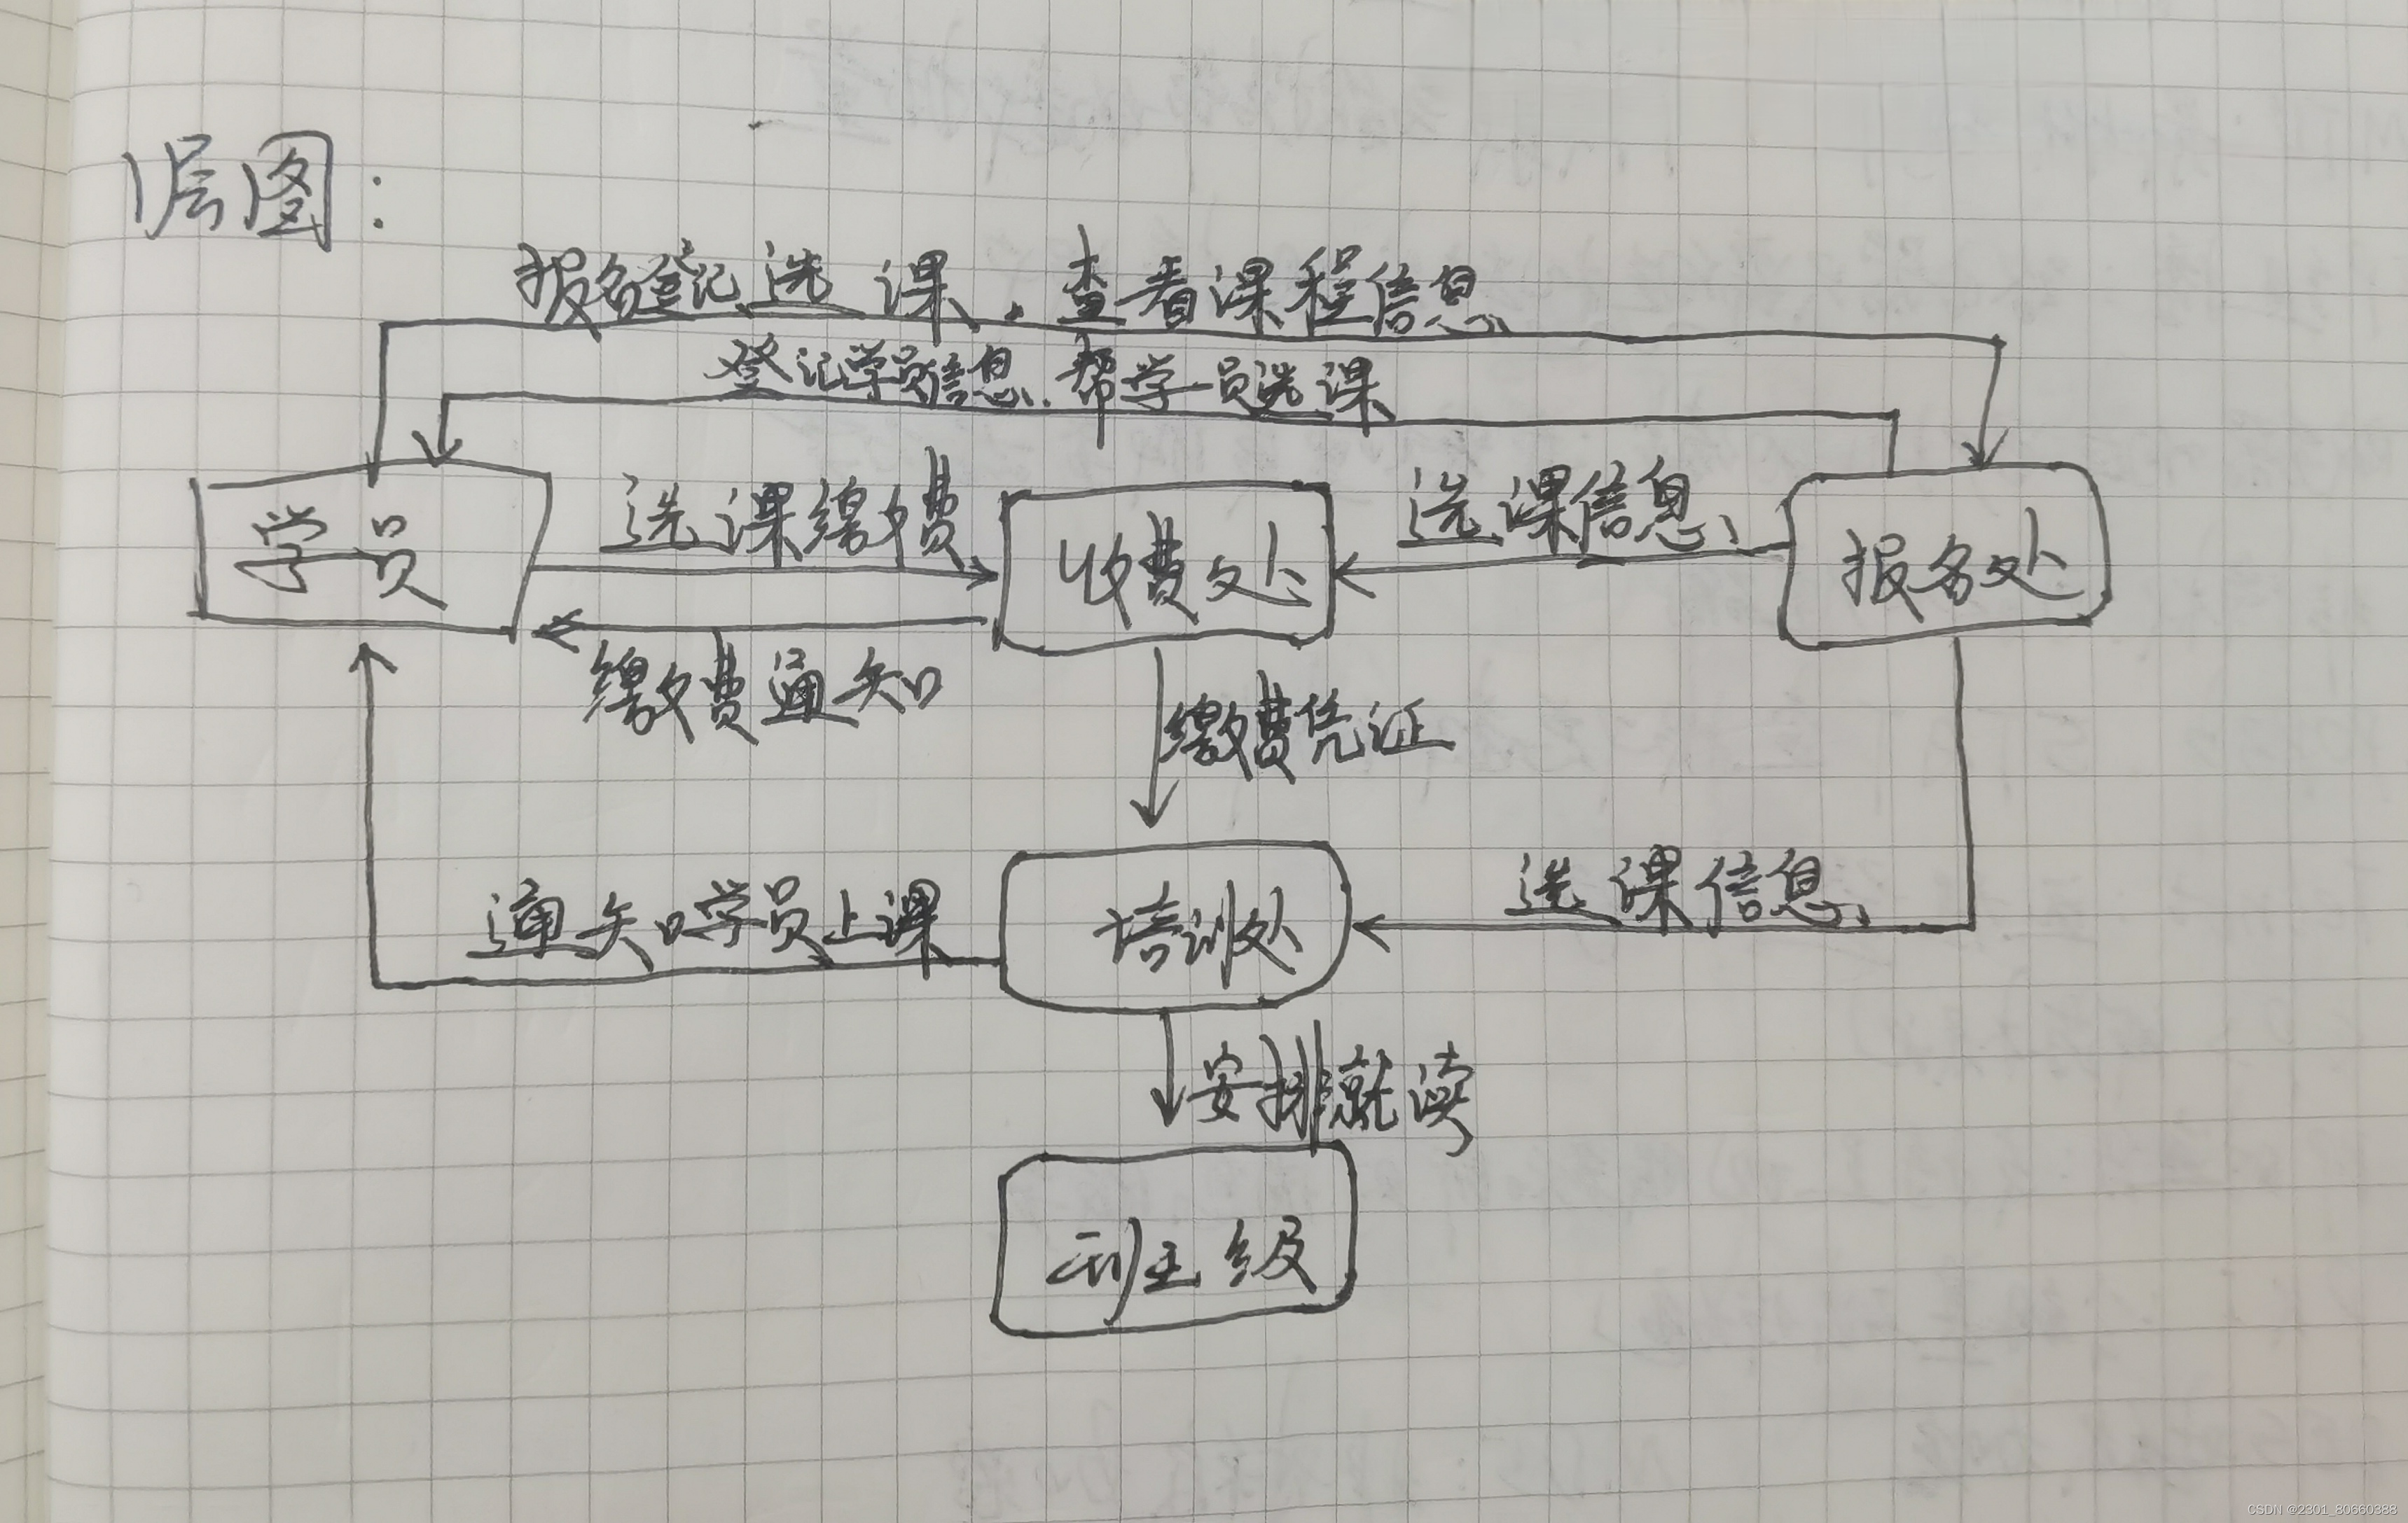 1层图：
报名登记、选课、查看课程信息
登记学员信息、帮学员选课
学员
选课缴费
收费处
选课信息
报名处
缴费通知
缴费凭证
通知学员上课
培训处
选课信息
安排就读
班级
CSDN @2301_80660388